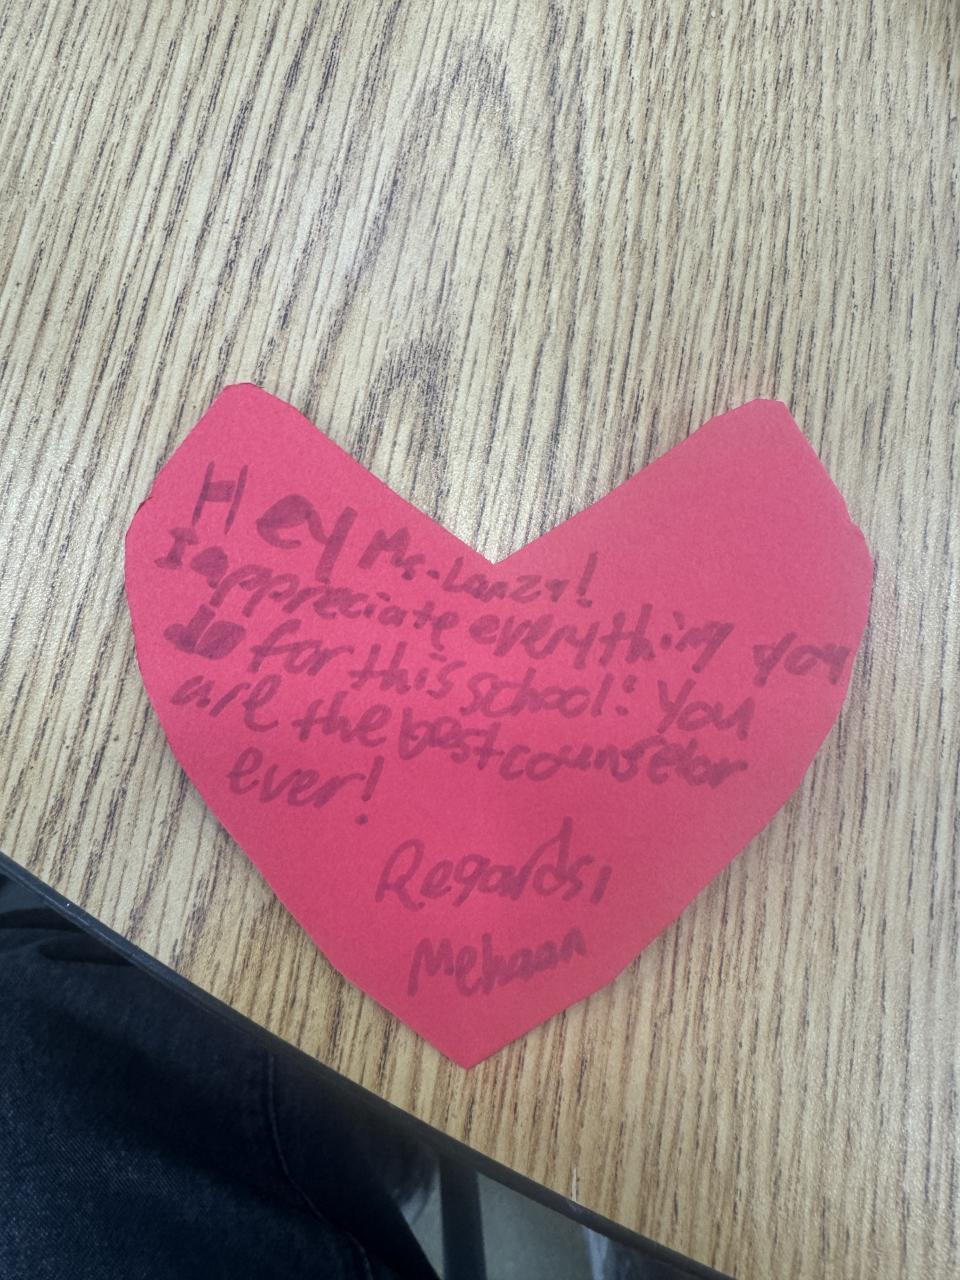 Hey Ms. Lanzy!
I appreciate everything you
do for this school! You
are the best counselor
ever!
Regards,
Mehaan